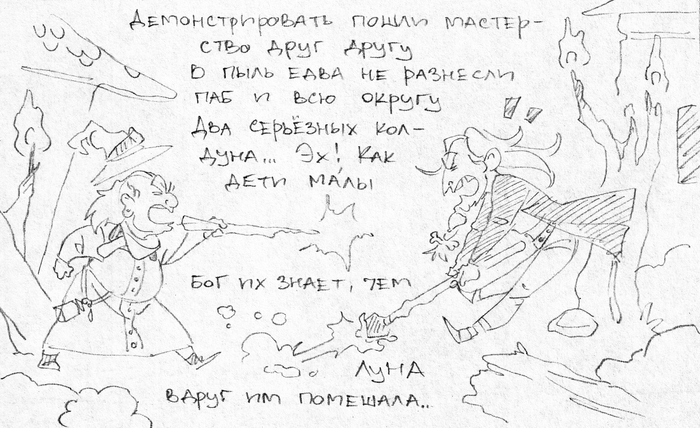 Демонстрировать пошли мастер-
ство друг другу
В пыль едва не разнесли
паб и всю округу
Два серьёзных кол-
дуна... Эх! Как
дети ма́лы
Бог их знает, чем
Луна
вдруг им помешала..